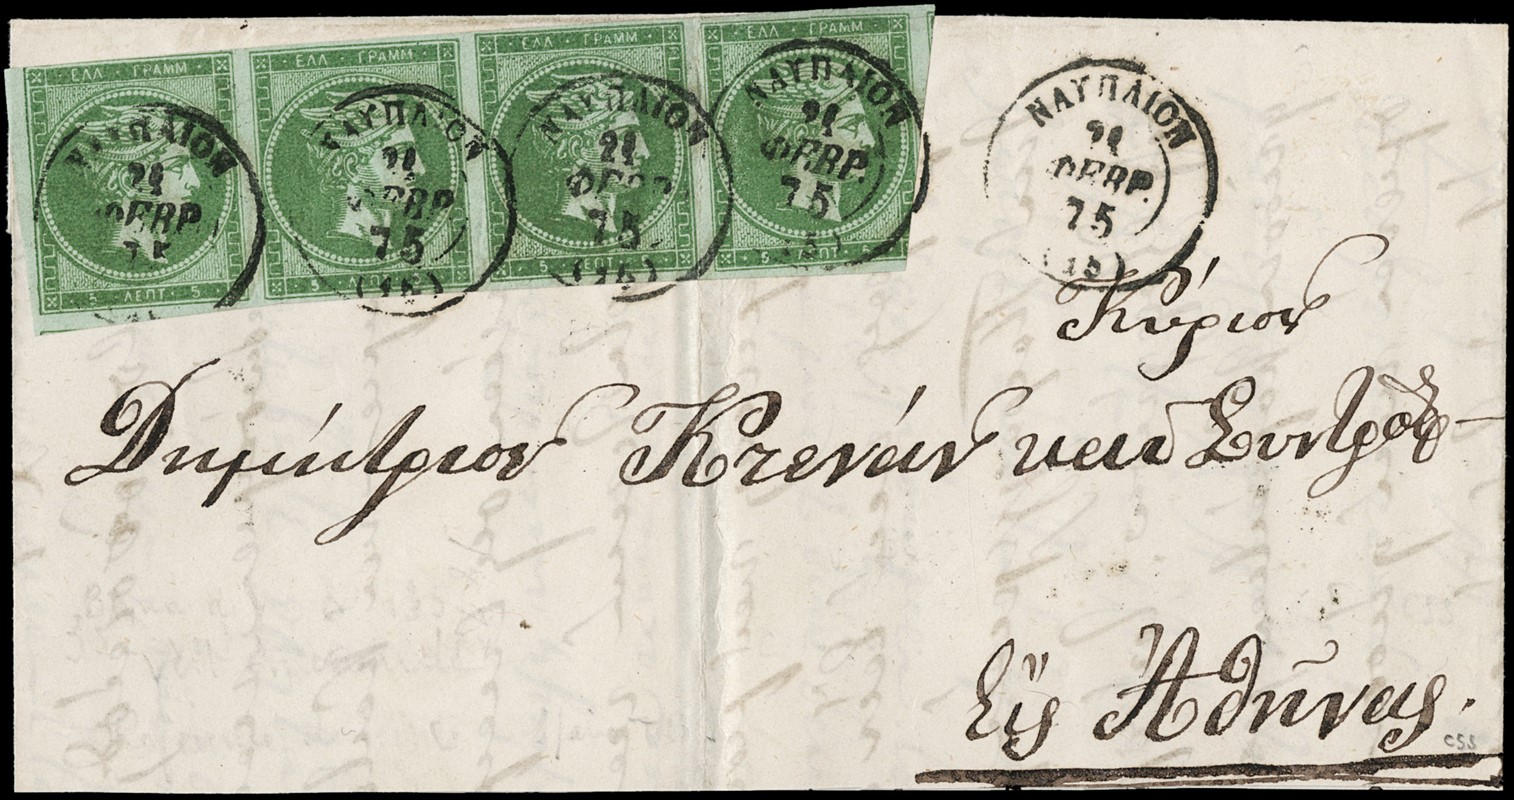 ΕΛΛ ΓΡΑΜΜ
5 ΛΕΠΤ 5
ΝΑΥΠΛΙΟΝ
21
ΦΕΒΡ.
75
ΕΛΛ ΓΡΑΜΜ
5 ΛΕΠΤ
ΝΑΥΠΛΙΟΝ
21
ΦΕΒΡ
75
(15)
ΕΛΛ ΓΡΑΜΜ
5 ΛΕΠΤ 5
ΝΑΥΠΛΙΟΝ
21
75
(15)
ΕΛΛ ΓΡΑΜΜ
5 ΛΕΠΤ
ΝΑΥΠΛΙΟΝ
21
ΦΕΒΡ.
75
(15)
ΝΑΥΠΛΙΟΝ
21
ΦΕΒΡ.
75
(15)
Κύριον
Δημήτριον Κτενάν και
Εἰς Ἀθήνας.
css